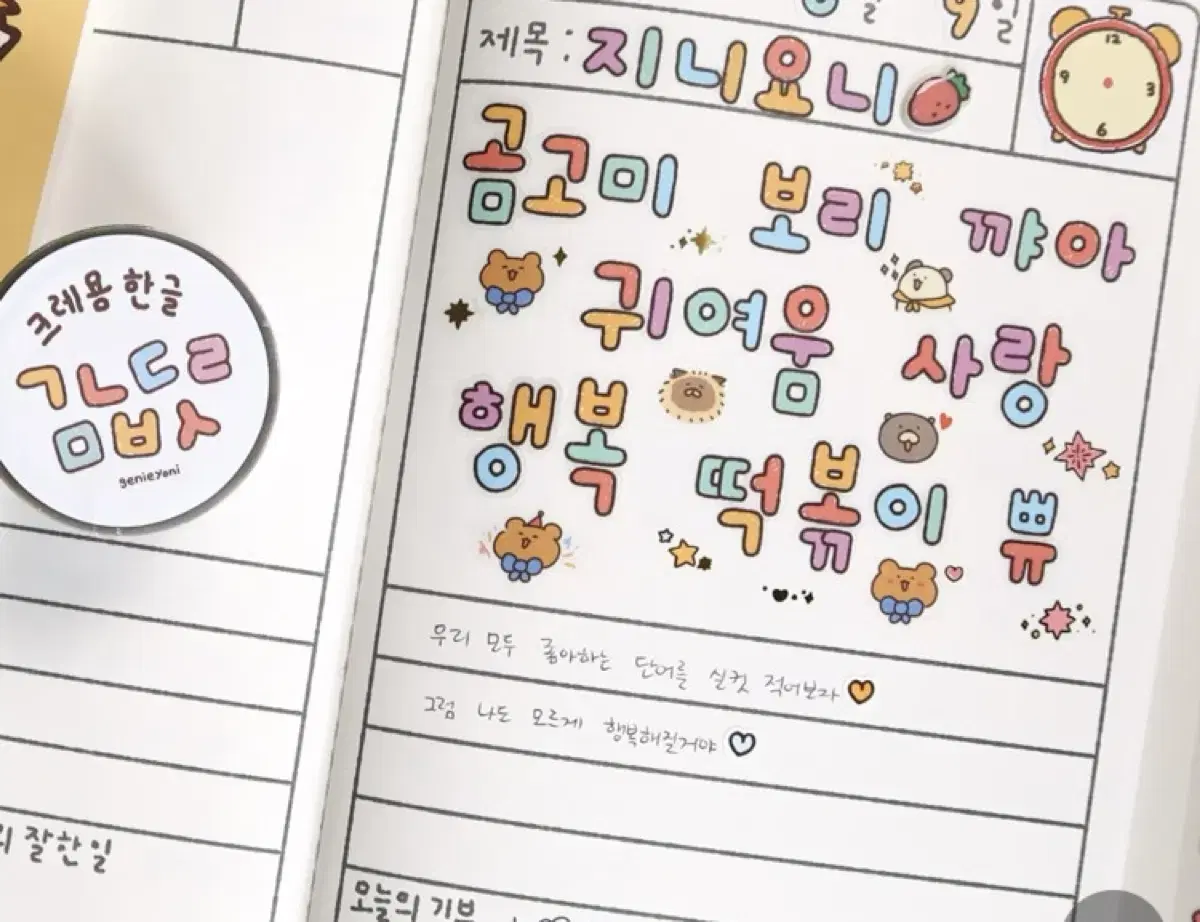 9일
제목: 지니요니
12
9 3
6
곰고미 보리 꺄아
귀여움 사랑
행복 떡볶이 쀼
우리 모두 좋아하는 단어를 실컷 적어보자
그럼 나도 모르게 행복해질거야
오늘의 기분
크레용 한글
ㄱㄴㄷㄹ
ㅁㅂㅅ
genieyoni
잘한 일